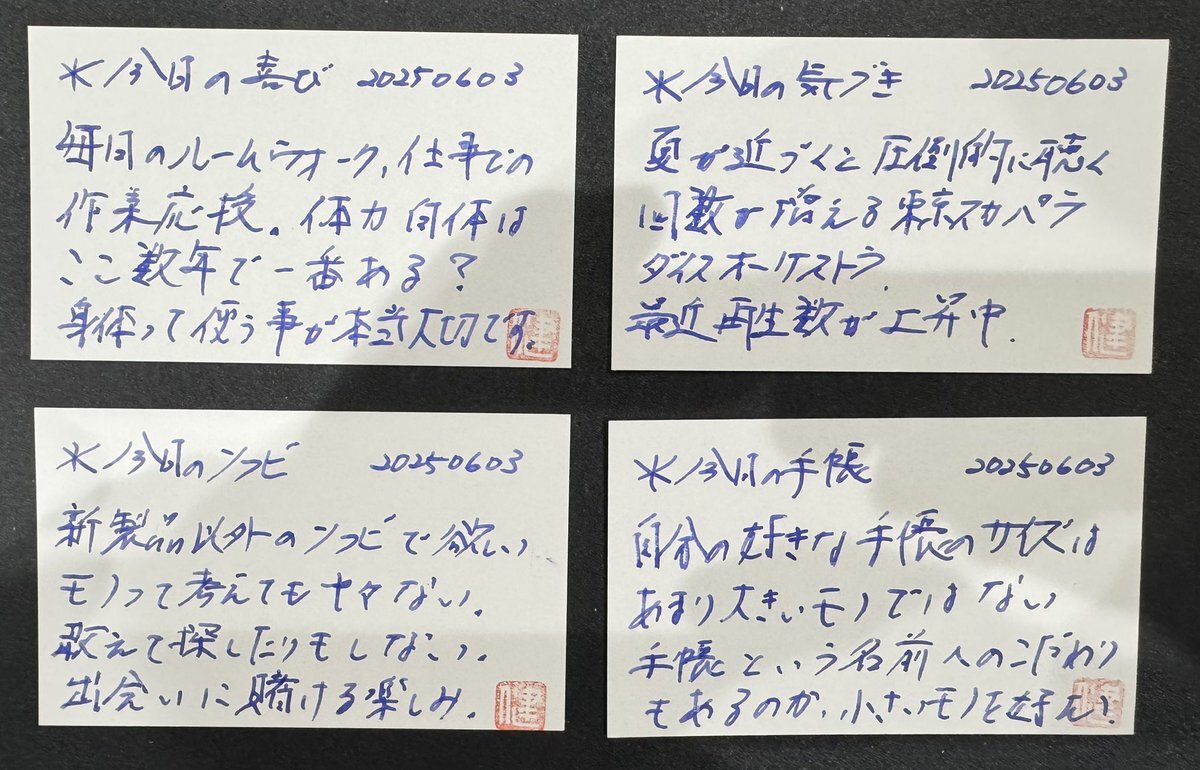 *今日の喜び 20250603
毎日のルームウォーク、仕事での
作業応援。体力自体は
ここ数年で一番ある?
身体って使う事が本当大切です。
健
*今日の気づき 20250603
夏が近づくと圧倒的に聴く
回数が増える東京スカパラ
ダイスオーケストラ
最近再生数が上昇中.
健
*今日のソフビ 20250603
新製品以外のソフビで欲しい
モノって考えても中々ない。
敢えて探したりもしない。
出会いに賭ける楽しみ。
健
*今日の手帳 20250603
自分の好きな手帳のサイズは
あまり大きいモノではない
手帳という名前へのこだわり
もあるのか、小さいモノを好む。
健